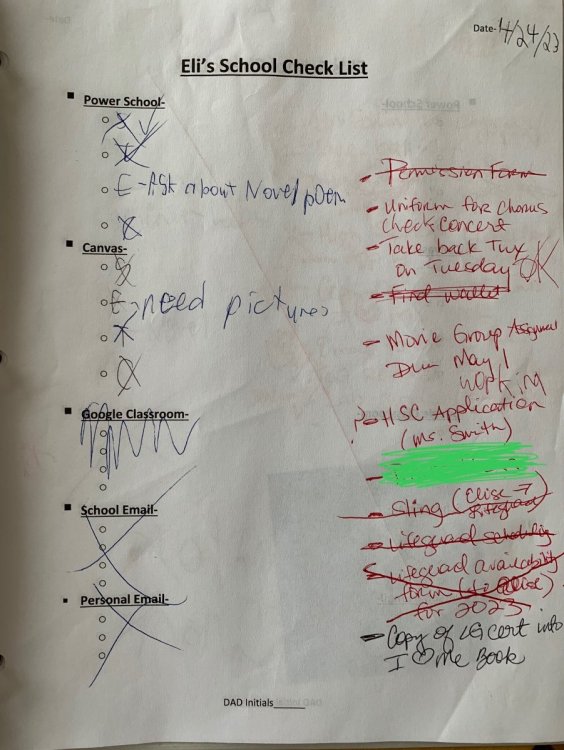 Date- 4/24/23
Eli's School Check List
Power School-
E-Ask about Novel poem
Canvas-
E-need pictures
Google Classroom-
School Email-
Personal Email-
- Permission Form
- Uniform for Chorus
Check Concert
- Take back Tux
on Tuesday OK
- Find wallet
- Movie Group Assignment
Due May 1
?- HSC Application
(Ms. Smith)
-
- Sling (Elise →
- Lifeguard scheduling
- Lifeguard availability
form (to Elise)
for 2023
- Copy of LG cert info
I ♡ Me Book
DAD Initials______